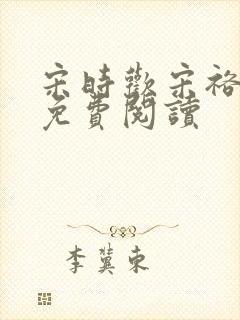 宋時歡宋裕
免費閱讀
李冀東